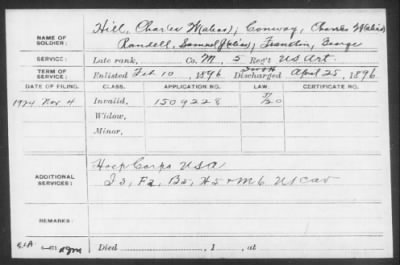 Hill, Charles (Malias), Conway, Charles (Malias)
NAME OF SOLDIER: Randell, Samuel (Alias), Franklin, George
SERVICE: Late rank, Co. M, 5 Reg't US Art.
TERM OF SERVICE: Enlisted Feb 10, 1896 Discharged April 25, 1896.
DATE OF FILING. CLASS. APPLICATION NO. LAW. CERTIFICATE NO.
1924 Nov 4 Invalid, 1509228
Widow,
Minor,
ADDITIONAL SERVICES: Hosp Corps USA
I3, F2, B5, H5 + M6 US Cav
REMARKS:
Died , 1 , at